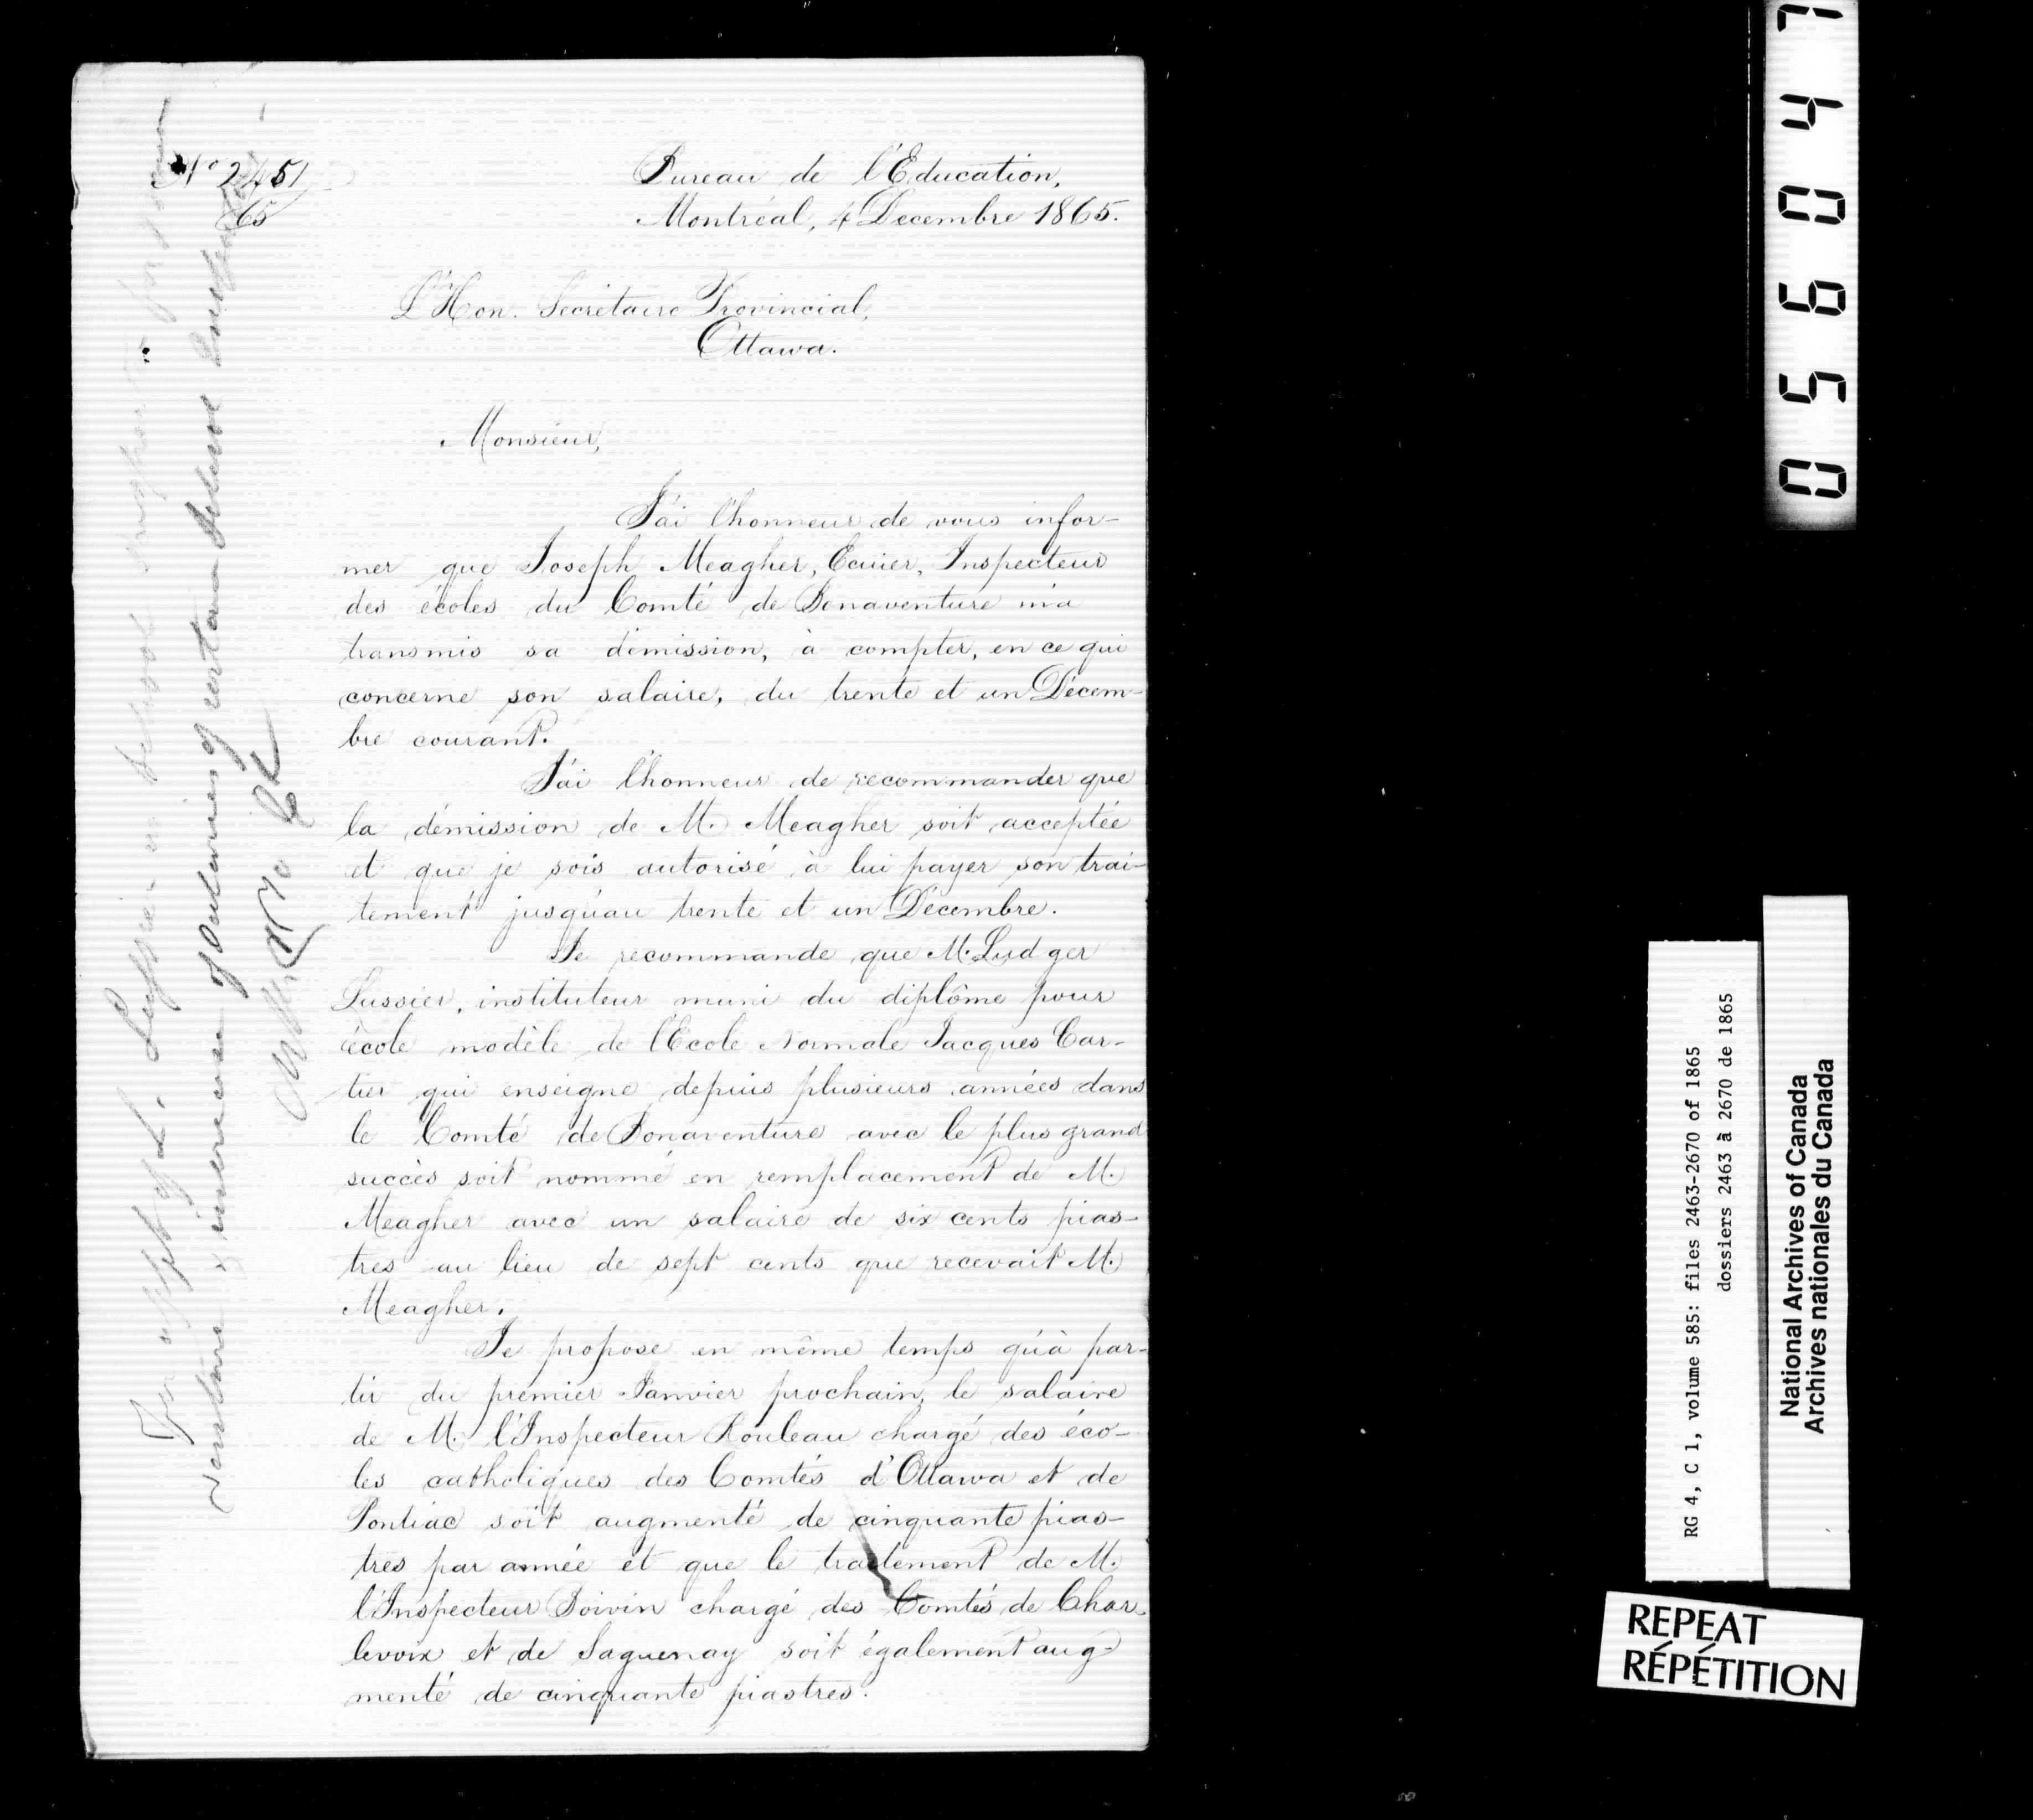 No 2451
65
Bureau de l'Education,
Montréal, 4 Décembre 1865.
L'Hon. Secrétaire Provincial,
Ottawa.
Monsieur,
J'ai l'honneur de vous infor-
mer que Joseph Meagher, Ecuier, Inspecteur
des écoles du Comté de Bonaventure m'a
transmis sa démission, à compter, en ce qui
concerne son salaire, du trente et un Décem-
bre courant.
J'ai l'honneur de recommander que
la démission de M. Meagher soit acceptée
et que je sois autorisé à lui payer son trai-
tement jusqu'au trente et un Décembre.
Je recommande que M. Ludger
Lussier, instituteur muni du diplôme pour
école modèle de l'Ecole Normale Jacques Car-
tier qui enseigne depuis plusieurs années dans
le Comté de Bonaventure avec le plus grand
succès soit nommé en remplacement de M.
Meagher avec un salaire de six cents pias-
tres au lieu de sept cents que recevait M.
Meagher.
Je propose en même temps qu'à par-
tir du premier Janvier prochain, le salaire
de M. l'Inspecteur Rouleau chargé des éco-
les catholiques des Comtés d'Ottawa et de
Pontiac soit augmenté de cinquante pias-
tres par année et que le traitement de M.
l'Inspecteur Boivin chargé des Comtés de Char-
levoix et de Saguenay soit également aug-
menté de cinquante piastres.
For appt of L. Lussier as School Inspector for Bona
venture & increase of salaries of certain School Inspectors
056047
RG 4, C 1, volume 585: files 2463-2670 of 1865
dossiers 2463 à 2670 de 1865
National Archives of Canada
Archives nationales du Canada
REPEAT
RÉPÉTITION